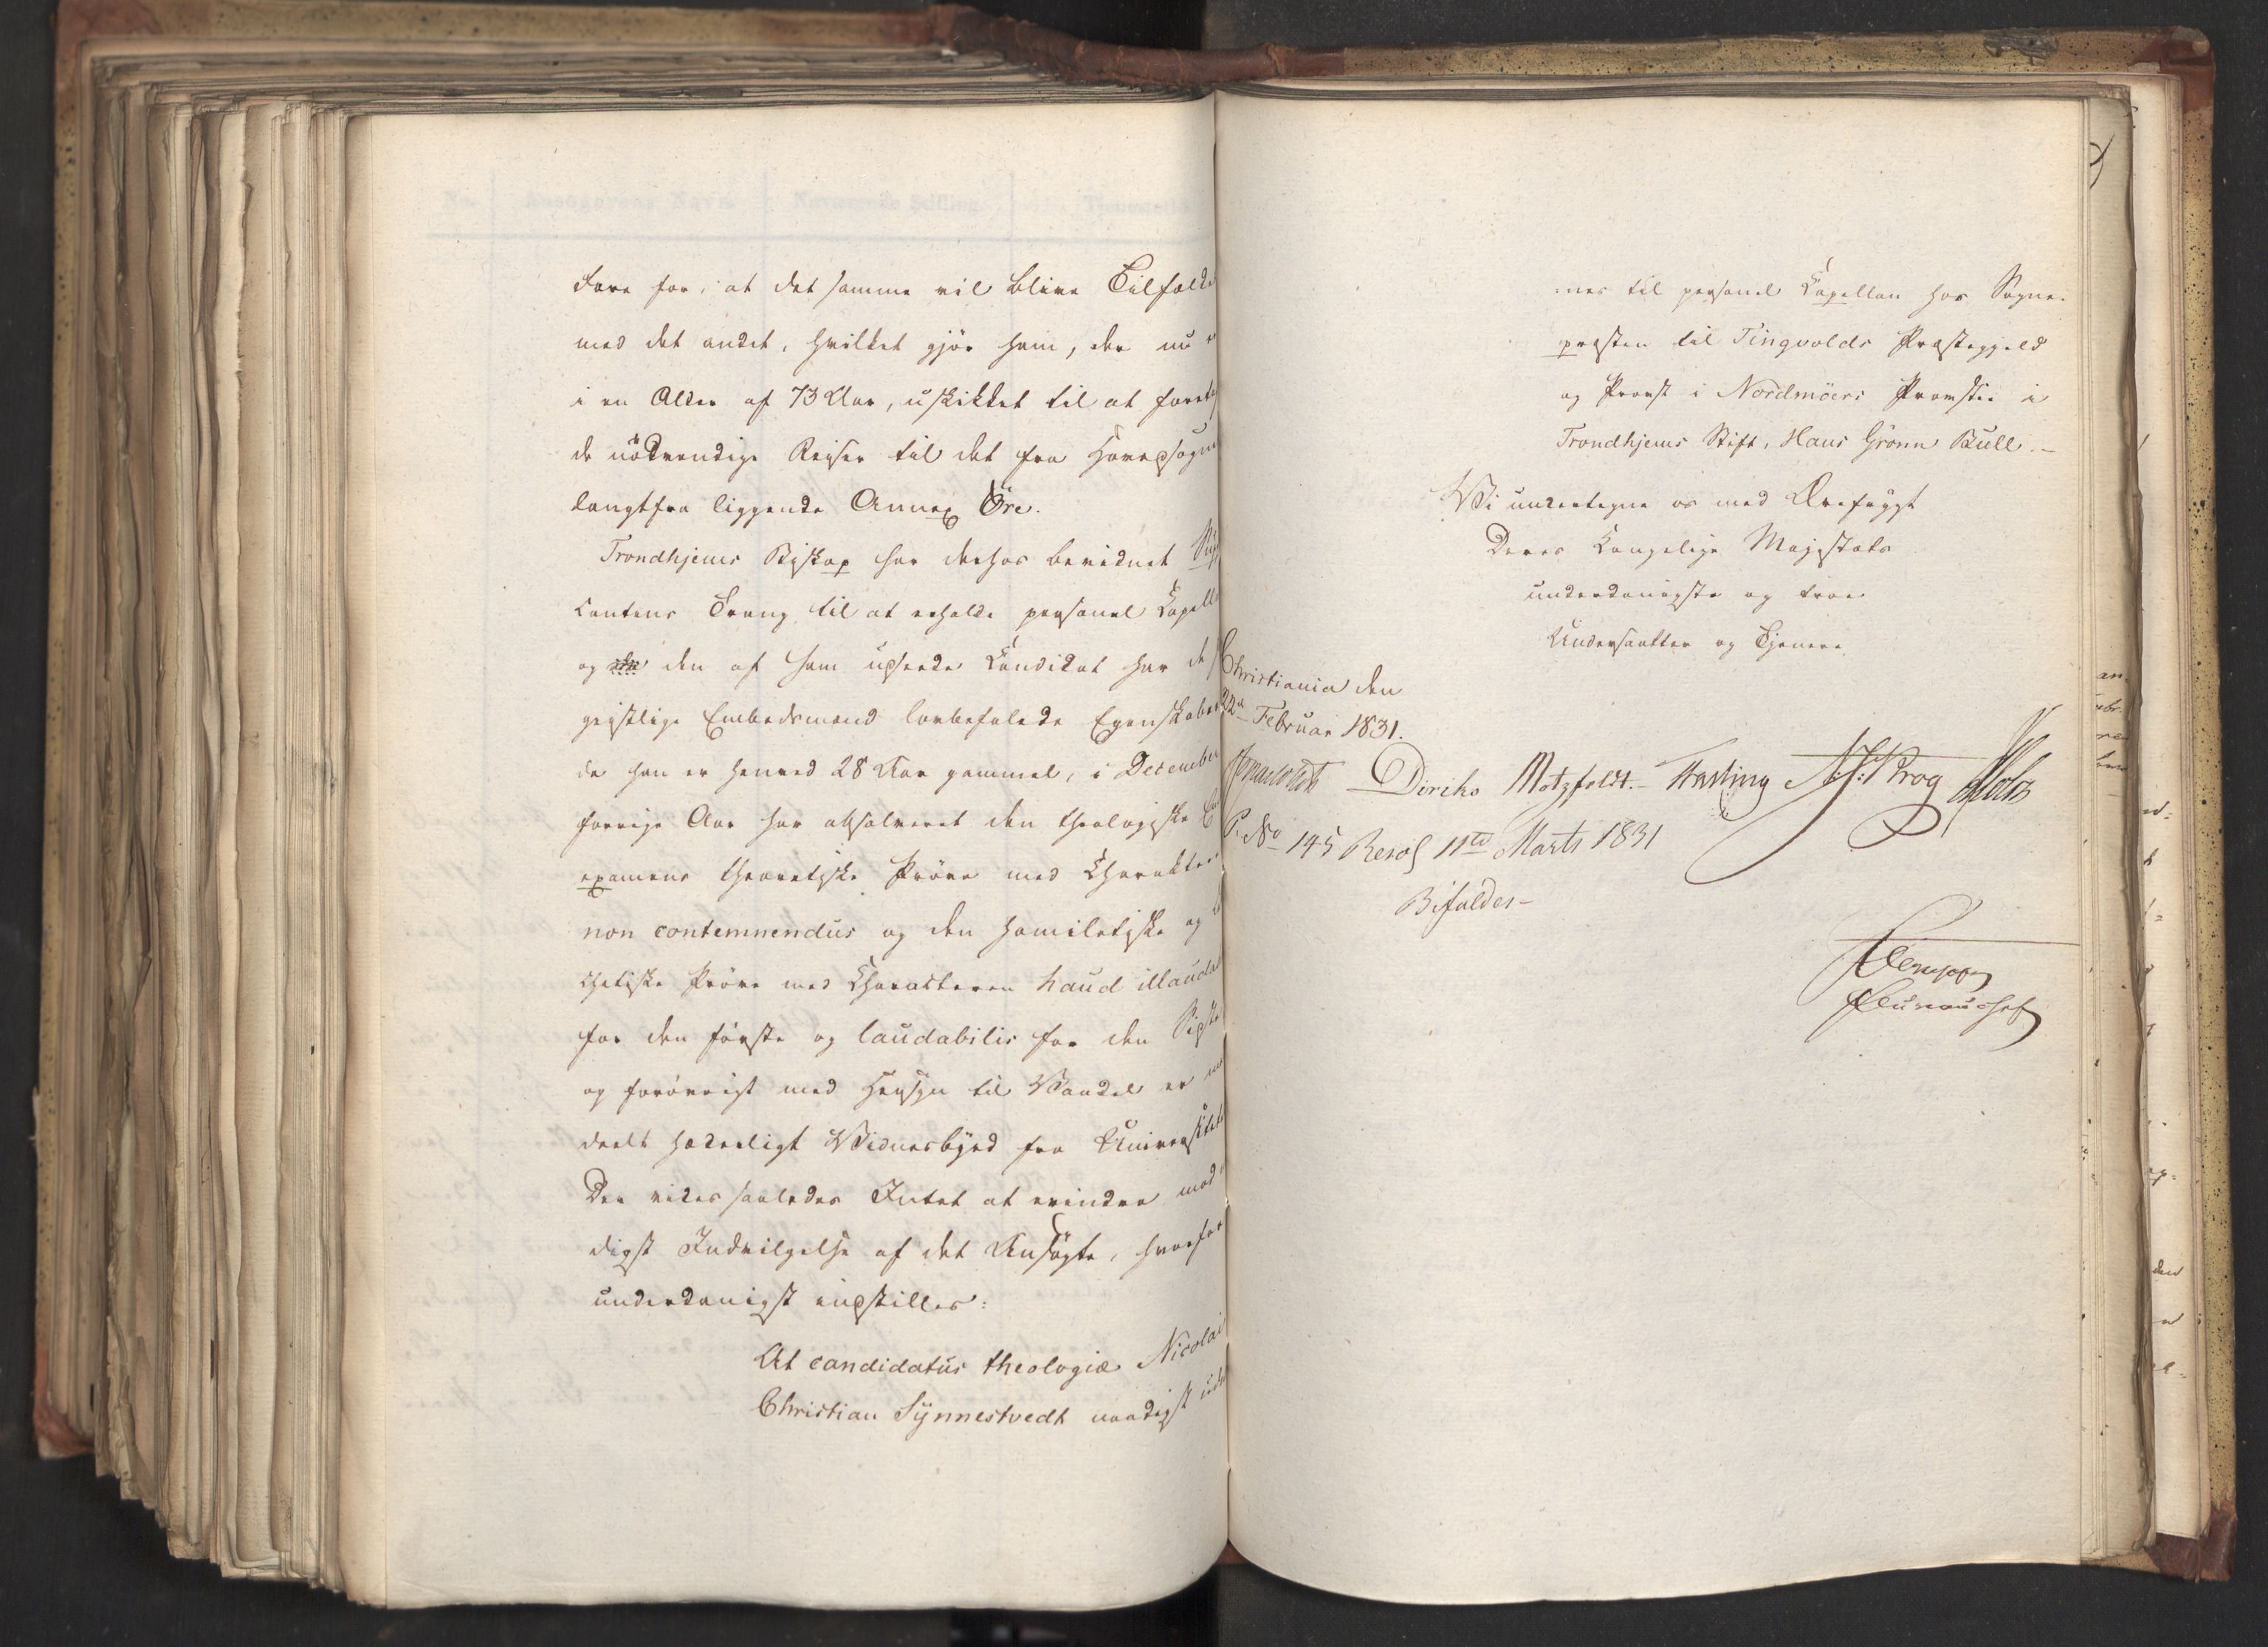 fare for, at det samme vil blive Tilfælde
med det andet, hvilket gjör ham, der nu er
i en Alder af 73 Aar, uskikket til at foretag
de nödvendige Reiser til det fra Hovedsogne
langtfra liggende Annex Öre.
Trondhjems Biskop har derhos bevidnet Sup
cantens Trang til at erholde personel Capell
og den af ham udseede Candidat har de
geistlige Embedsmænd anbefalede Egenskaber
da han er henved 28 Aar gammel, i December
forrige Aar har absolveret den theologiske
examens theoretiske Pröve med Charakter
non contemnendus og den homiletiske og
chetiske Pröve med Characteren haud illauda
for den förste og laudabilis for den Sidste
og forövrigt med Hensyn til Vandel er med
deelt hæderligt Vidnesbyrd fra Universitet
Der vides saaledes Intet at erindre mod
digst Indvilgelse af det Ansögte, hvorfor
underdanigst indstilles:
At candidatus theologiæ Nicolai
Christian Synnestvedt naadigst ud
:nes til personel Capellan hos Sogne-
præsten til Tingvolds Præstegjeld
og Provst i Nordmöers Provstie i
Trondhjems Stift, Hans Grönn Bull.-
Vi undertegne os med Ærefrygt
Deres Kongelige Majestæts
underdanigste og troe
Undersaatter og Tjenere
Christiania den
22de Februar 1831.
Diriks Motzfeldt.- Fasting
P. No 145 Resol 11te Marts 1831
Bifaldes-